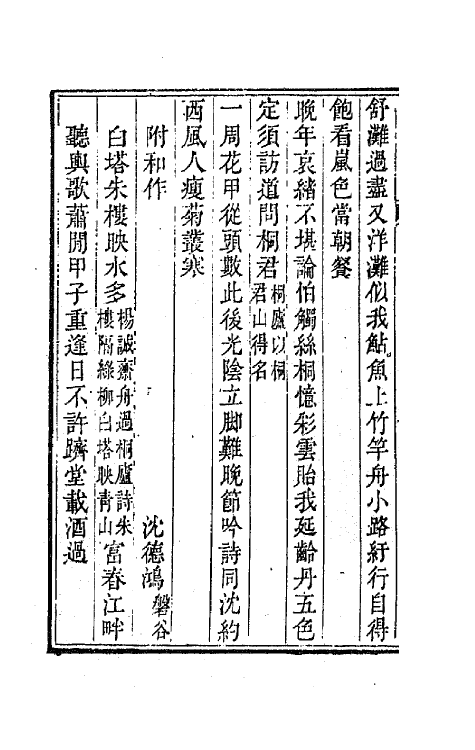 舒灘過盡又洋灘似我鮎魚上竹竿舟小路紆行自得
飽看嵐色當朝餐
晚年哀緒不堪論怕觸絲桐憶彩雲貽我延齡丹五色
定須訪道問桐君桐廬以桐君山得名
一周花甲從頭數此後光陰立脚難晚節吟詩同沈約
西風人瘦菊叢寒
附和作 沈德鴻磐谷
白塔朱樓映水多楊誠齋舟過桐廬詩朱樓隔綠柳白塔映青山富春江畔
聽輿歌蕭閒甲子重逢日不許躋堂載酒過